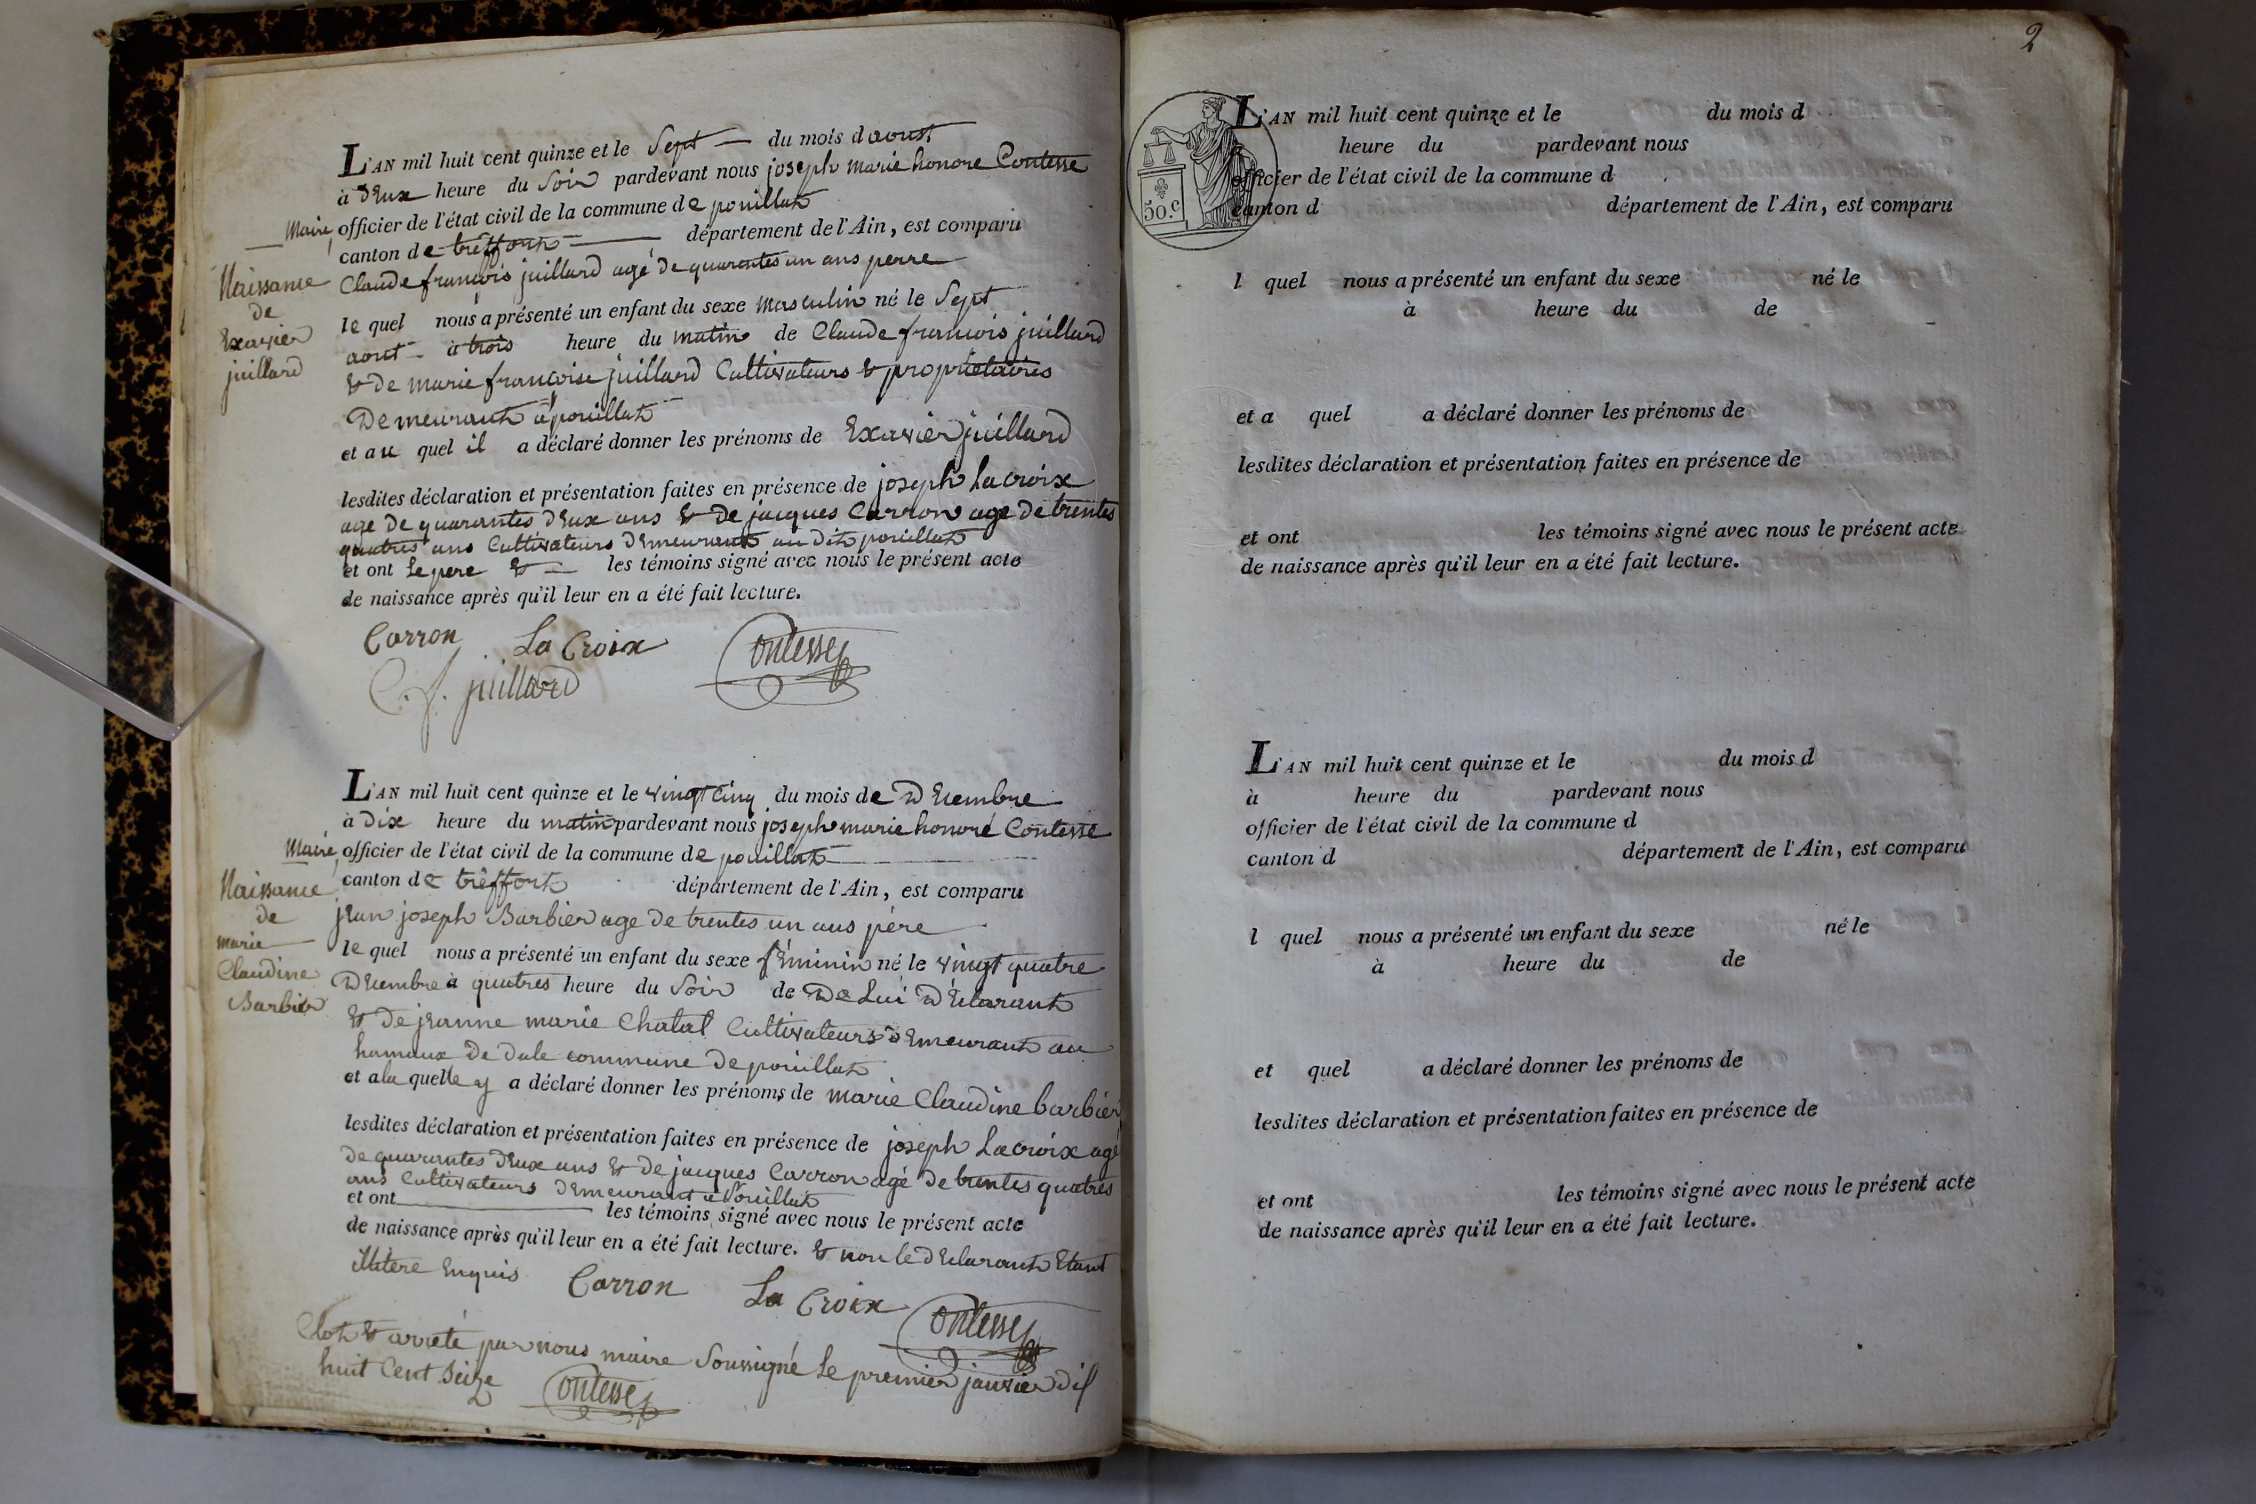 L'AN mil huit cent quinze et le Sept du mois d aoust
à deux heure du Soir pardevant nous joseph marie honore Contesse
Maire, officier de l'état civil de la commune de pouillat
canton de treffort département de l'Ain, est comparu
Naissance
de
Exavier
juillard
Claude françois juillard agé de quarantes un ans perre
le quel nous a présenté un enfant du sexe masculin né le Sept
aout à trois heure du matin de Claude francois juillard
& de marie françoise juillard Cultivateurs & proprietaires
Demeurant a pouillat
et au quel il a déclaré donner les prénoms de Exavier juillard
lesdites déclaration et présentation faites en présence de joseph Lacroix
age de quarantes deux ans & de jacques Carron age de trentes
quatres ans Cultivateurs demeurant au dit pouillat
et ont Le pere & les témoins signé avec nous le présent acte
de naissance après qu'il leur en a été fait lecture.
Carron La Croix Contesse
C. f. juillard
L'AN mil huit cent quinze et le vingt Cinq du mois de Decembre
à Dix heure du matin pardevant nous joseph marie honoré Contesse
Maire, officier de l'état civil de la commune de pouillat
canton de treffort département de l'Ain, est comparu
Naissance
de
marie
Claudine
Barbier
jean joseph Barbier age de trentes un ans père
le quel nous a présenté un enfant du sexe féminin né le vingt quatre
Decembre à quatres heure du Soir de De Lui Déclarant
& De jeanne marie Chatal Cultivateurs Demeurant au
hamaux De dale commune De pouillat
et a la quelle y a déclaré donner les prénoms de marie Claudine barbier
lesdites déclaration et présentation faites en présence de joseph Lacroix agé
De quarantes deux ans & De jacques Carron agé De trentes quatres
ans Cultivateurs demeurant a Pouillat
et ont les témoins signé avec nous le présent acte
de naissance après qu'il leur en a été fait lecture. & non le declarant Etant
Illitere Enquis Carron La Croix Contesse
Clot & arreté par nous maire Soussigné Le premier janvier dil
huit Cent Seize Contesse
2
L'AN mil huit cent quinze et le du mois d
heure du pardevant nous
officier de l'état civil de la commune d
50.c
canton d département de l'Ain, est comparu
l quel nous a présenté un enfant du sexe né le
à heure du de
et a quel a déclaré donner les prénoms de
lesdites déclaration et présentation faites en présence de
et ont les témoins signé avec nous le présent acte
de naissance après qu'il leur en a été fait lecture.
L'AN mil huit cent quinze et le du mois d
à heure du pardevant nous
officier de l'état civil de la commune d
canton d département de l'Ain, est comparu
l quel nous a présenté un enfant du sexe né le
à heure du de
et quel a déclaré donner les prénoms de
lesdites déclaration et présentation faites en présence de
et ont les témoins signé avec nous le présent acte
de naissance après qu'il leur en a été fait lecture.